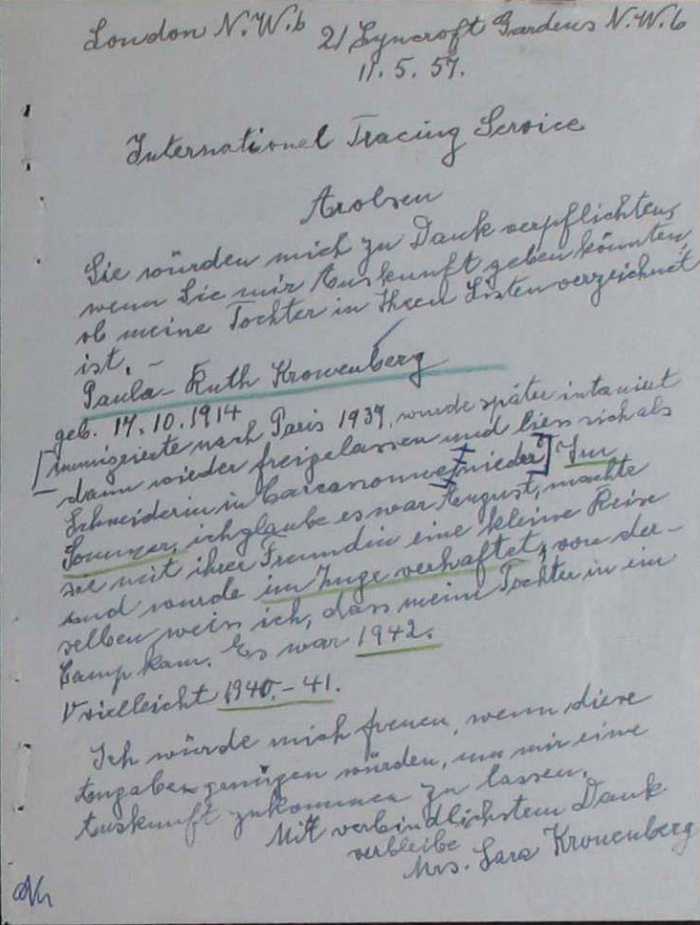 London N.W.6 21 Lyncroft Gardens N.W.6
11.5.57.
International Tracing Service
Arolsen
Sie würden mich zu Dank verpflichten,
wenn Sie mir Auskunft geben könnten,
ob meine Tochter in Ihren Listen verzeichnet
ist. –
Paula-Ruth Kronenberg
geb. 17.10.1914
[immigrierte nach Paris 1937, wurde später interniert
dann wieder freigelassen und liess sich als
Schneiderin in Carcasonne nieder] Im
Sommer, ich glaube es war August, machte
sie mit ihrer Freundin eine kleine Reise
und wurde im Zuge verhaftet, von der-
selben weiss ich, dass meine Tochter in ein
Camp kam. Es war 1942.
Vielleicht 1940.-41.
Ich würde mich freuen, wenn diese
Angaben genügen würden, um mir eine
Auskunft zukommen zu lassen.
Mit verbindlichstem Dank
verbleibe
Mrs. Sara Kronenberg